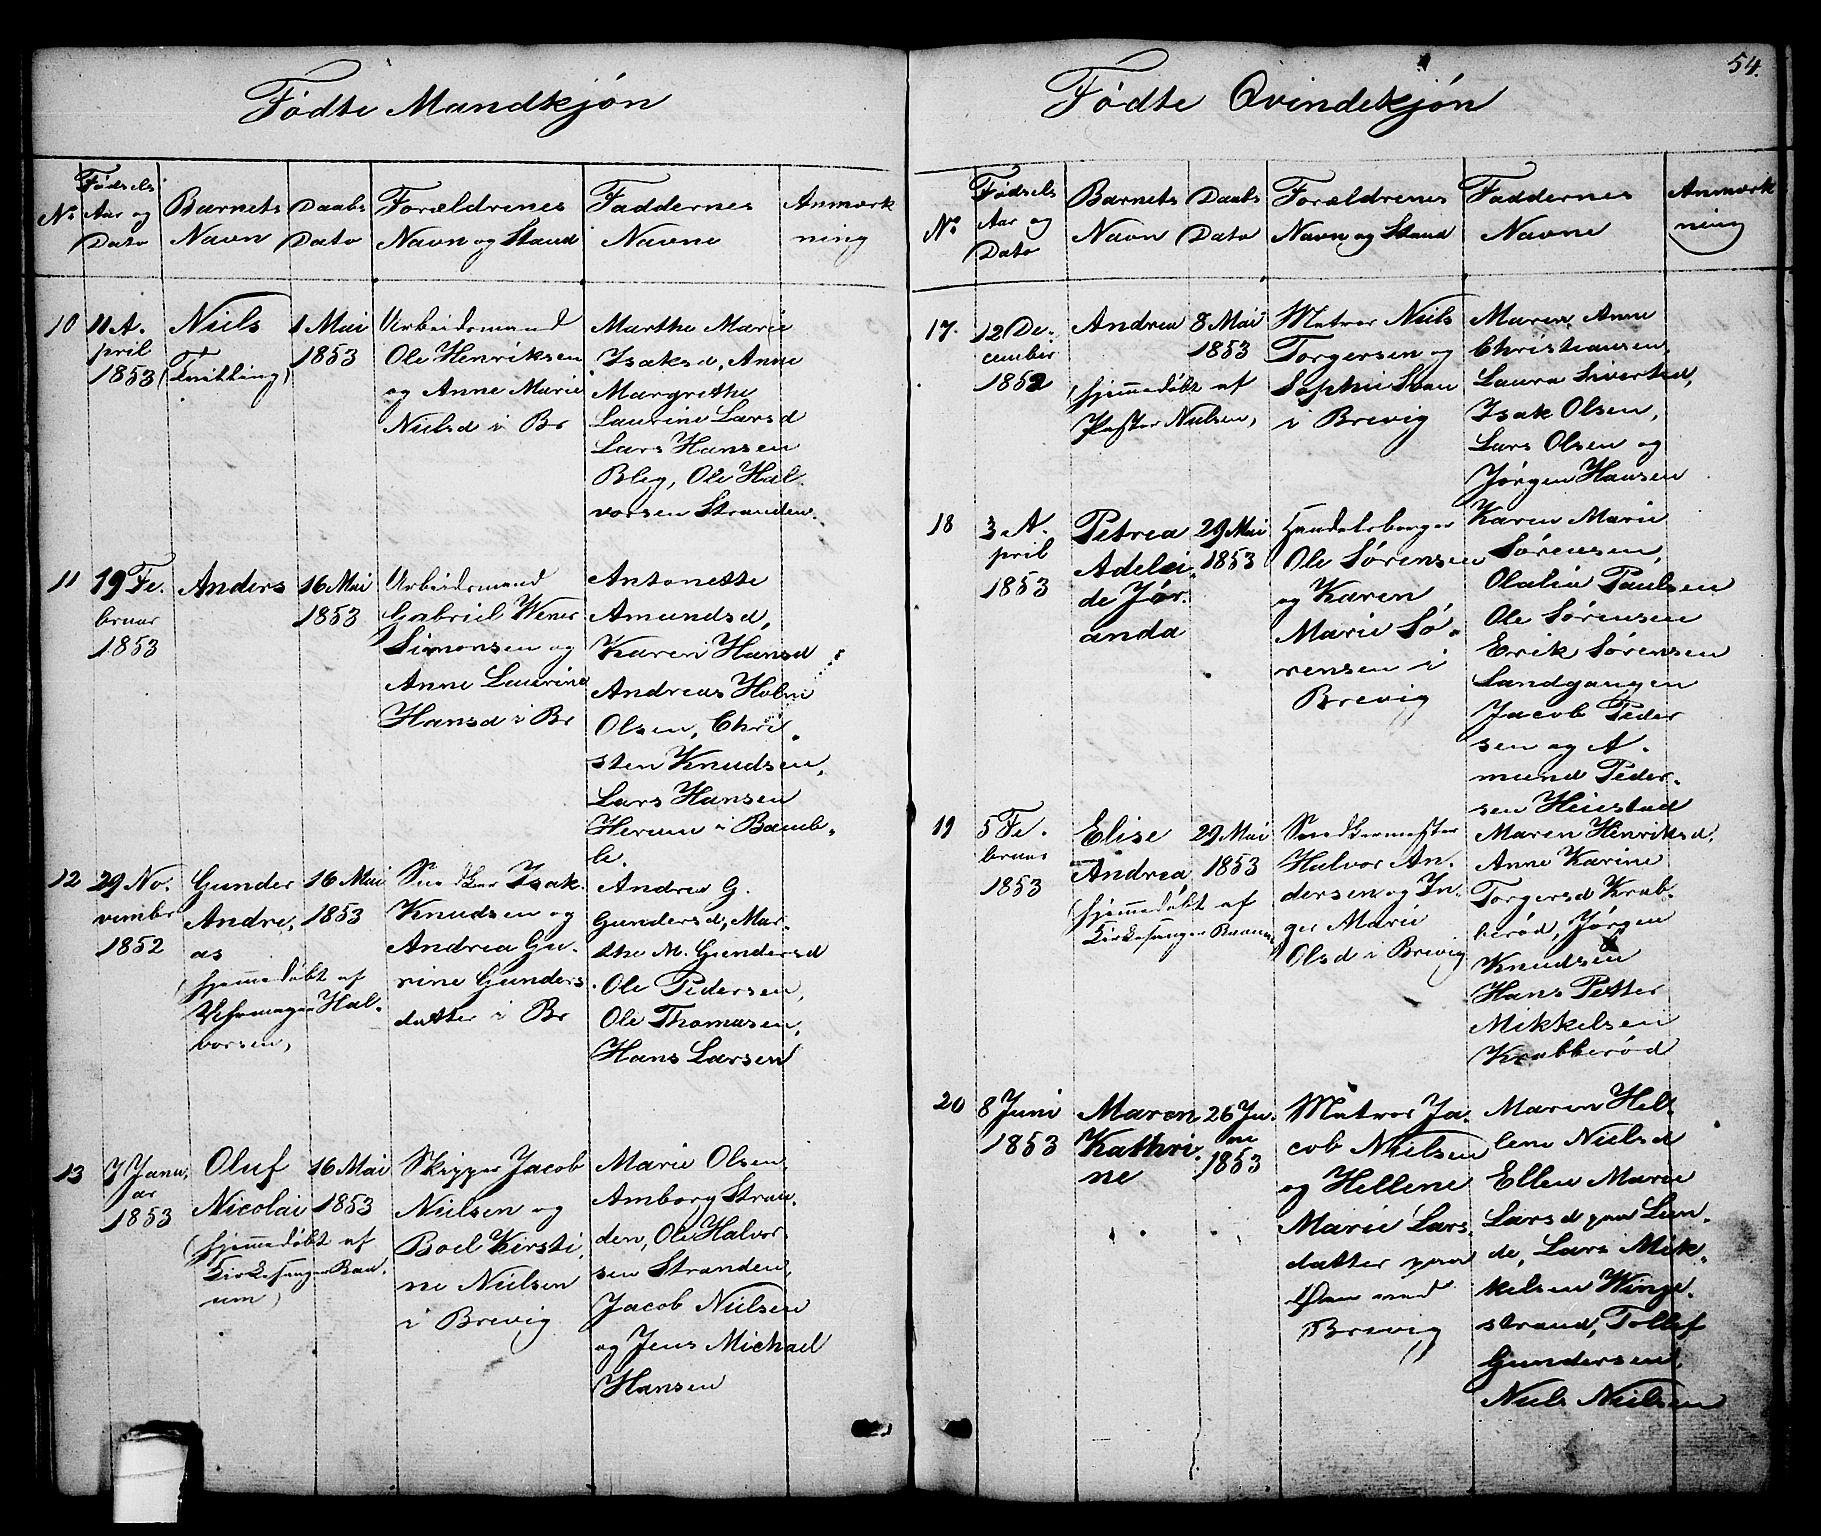 Fødte Mandkjøn
No
Fødsels
Aar og
Dato
Barnets
Navn
Daabs
Dato
Forældrenes
Navn og Stand
Faddernes
Navne
Anmærk
ning
10
11 A-
pril
1853
Niels
(Tvilling)
1 Mai
1853
Arbeidsmand
Ole Henriksen
og Anne Marie
Nielsd i Br
Marthe Marie
Isaksd, Anne
Margrethe
Laurine Larsd
Lars Hansen
Bleg, Ole Hal-
vorsen Stranden.
11
19 Fe-
bruar
1853
Anders
16 Mai
1853
Arbeidsmand
Gabriel Wener
Simonsen og
Anne Laurine
Hansd i Br
Antonette
Amundsd,
Karen Hansd
Andreas Holm
Olsen, Chri-
sten Knudsen,
Lars Hansen
Herum i Bamb-
le.
12
29 No-
vembr
1852
Gunder
Andre-
as
(hjemmedøbt af
Halvorsen,
16 Mai
1853
Snedker Isak
Knudsen og
Andrea Gu-
rine Gunders
datter i Br
Andrea G.
Gundersd, Mar-
the M. Gundersd
Ole Pedersen,
Ole Thomasen,
Hans Larsen
13
7 Janu-
ar
1853
Oluf
Nicolai
(hjemmedøbt af
Kirkesanger Baa-
um)
16 Mai
1853
Skipper Jacob
Nielsen og
Boel Kirsti-
ne Nielsen
i Brevig
Marie Olsen
Amborg Stran-
den, Ole Halvor
sen Stranden,
Jacob Nielsen
og Jens Michael
Hansen
54.
Fødte Qvindekjøn
No
Fødsels
Aar og
Dato
Barnets
Navn
Daabs
Dato
Forældrenes
Navn og Stand
Faddernes
Navne
Anmærk
ning
17.
12 De-
cember
1852
Andrea
(hjemmedøbt af
Pastor Nielsen,
8 Mai
1853
Matros Niels
Torgersen og
Sophie Svan
i Brevig
Maren Anne
Christiansen,
Laura Sivertsd,
Isak Olsen,
Lars Olsen og
Jørgen Hansen
18
3 A-
pril
1853
Petrea
Adelei-
de Jør-
anda
29 Mai
1853
Handelsborger
Ole Sørensen
og Karen
Marie Sø-
rensen i
Brevig
Karen Marie
Sørensen,
Olalia Paulsen
Ole Sørensen
Erik Sørensen
Landgangen
Jacob Peder
sen og A-
mund Peder-
sen Heiestad
19
5 Fe-
bruar
1853
Elise
Andrea
(hjemmedøbt af
Kirkesanger Baaum
29 Mai
1853
Snedkermester
Halvor An-
dersen og In-
ger Marie
Olsd i Brevig
Maren Henriksd,
Anne Karine
Torgersd Krab-
berød, Jørgen
Knudsen
Hans Petter
Mikkelsen
Krabberød
20
8 Juni
1853
Maren
Kathri-
ne
26 Ju-
ni
1853
Matros Ja-
cob Nielsen
og Hellene
Marie Lars
datter paa
Øen ved
Brevig
Maren Hel-
lene Nielsd
Ellen Marie
Larsd paa Lun-
de, Lars Mik-
kelsen Winge-
strand, Tollef
Gundersen,
Niels Nielsen